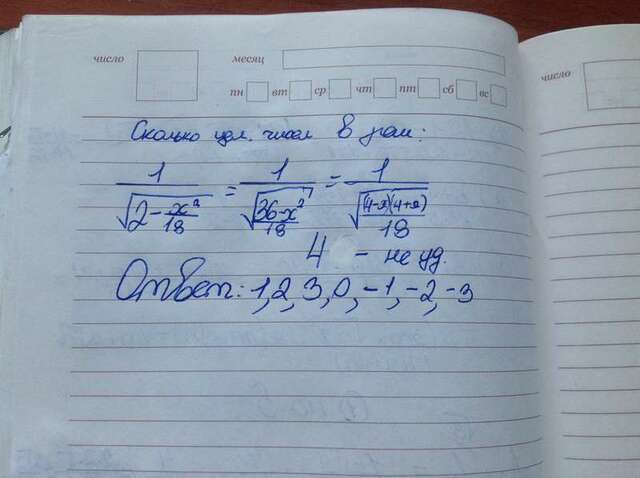 число месяц
пн вт ср чт пт сб вс
число
Сколько цел. чисел в
1/√(2-x²/18) = 1/√((36-x²)/18) = 1/√((4-x)(4+x)/18)
4 - не уд.
Ответ: 1, 2, 3, 0, -1, -2, -3